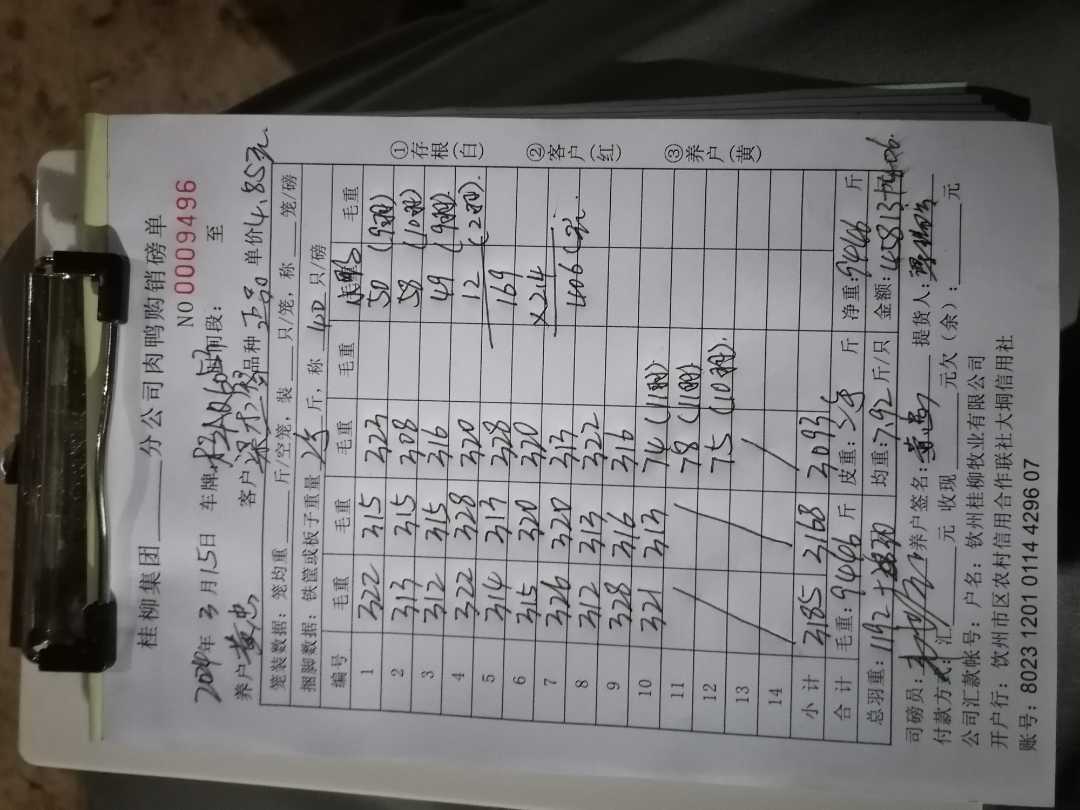 桂柳集团______分公司肉鸭购销磅单
NO 0009496
2024年3月15日 车牌： 时间段： 至
养户 黄忠 客户 品种 正品 单价4.85元
笼装数据：笼均重____斤/空笼，装____只/笼，称____笼/磅
捆脚数据：铁筐或板子重量 斤，称 40 只/磅
编号 毛重 毛重 毛重 毛重 毛重
1 322 315 323 50 (9羽)
2 313 315 308 58 (10羽)
3 312 315 316 49 (9羽)
4 322 328 320 12 (2羽).
5 314 313 328 169
6 315 320 320 X2.4
7 326 320 313 406
8 312 313 322
9 328 316 316
10 321 313 74 (11羽)
11 / / 78 (11羽)
12 75 (10羽)
13 / / /
14
小计 3185 3168 3093
合计 毛重：9446 斤 皮重： 斤 净重：9446 斤
总羽重：1192 羽 均重：7.92斤/只 金额：45813+406.
司磅员： 养户签名： 提货人：
付款方式：汇____元 收现____元欠（余）：____元
公司汇款帐号：户名：钦州桂柳牧业有限公司
开户行：钦州市区农村信用合作联社大垌信用社
账号：8023 1201 0114 4296 07
①存根（白）
②客户（红）
③养户（黄）